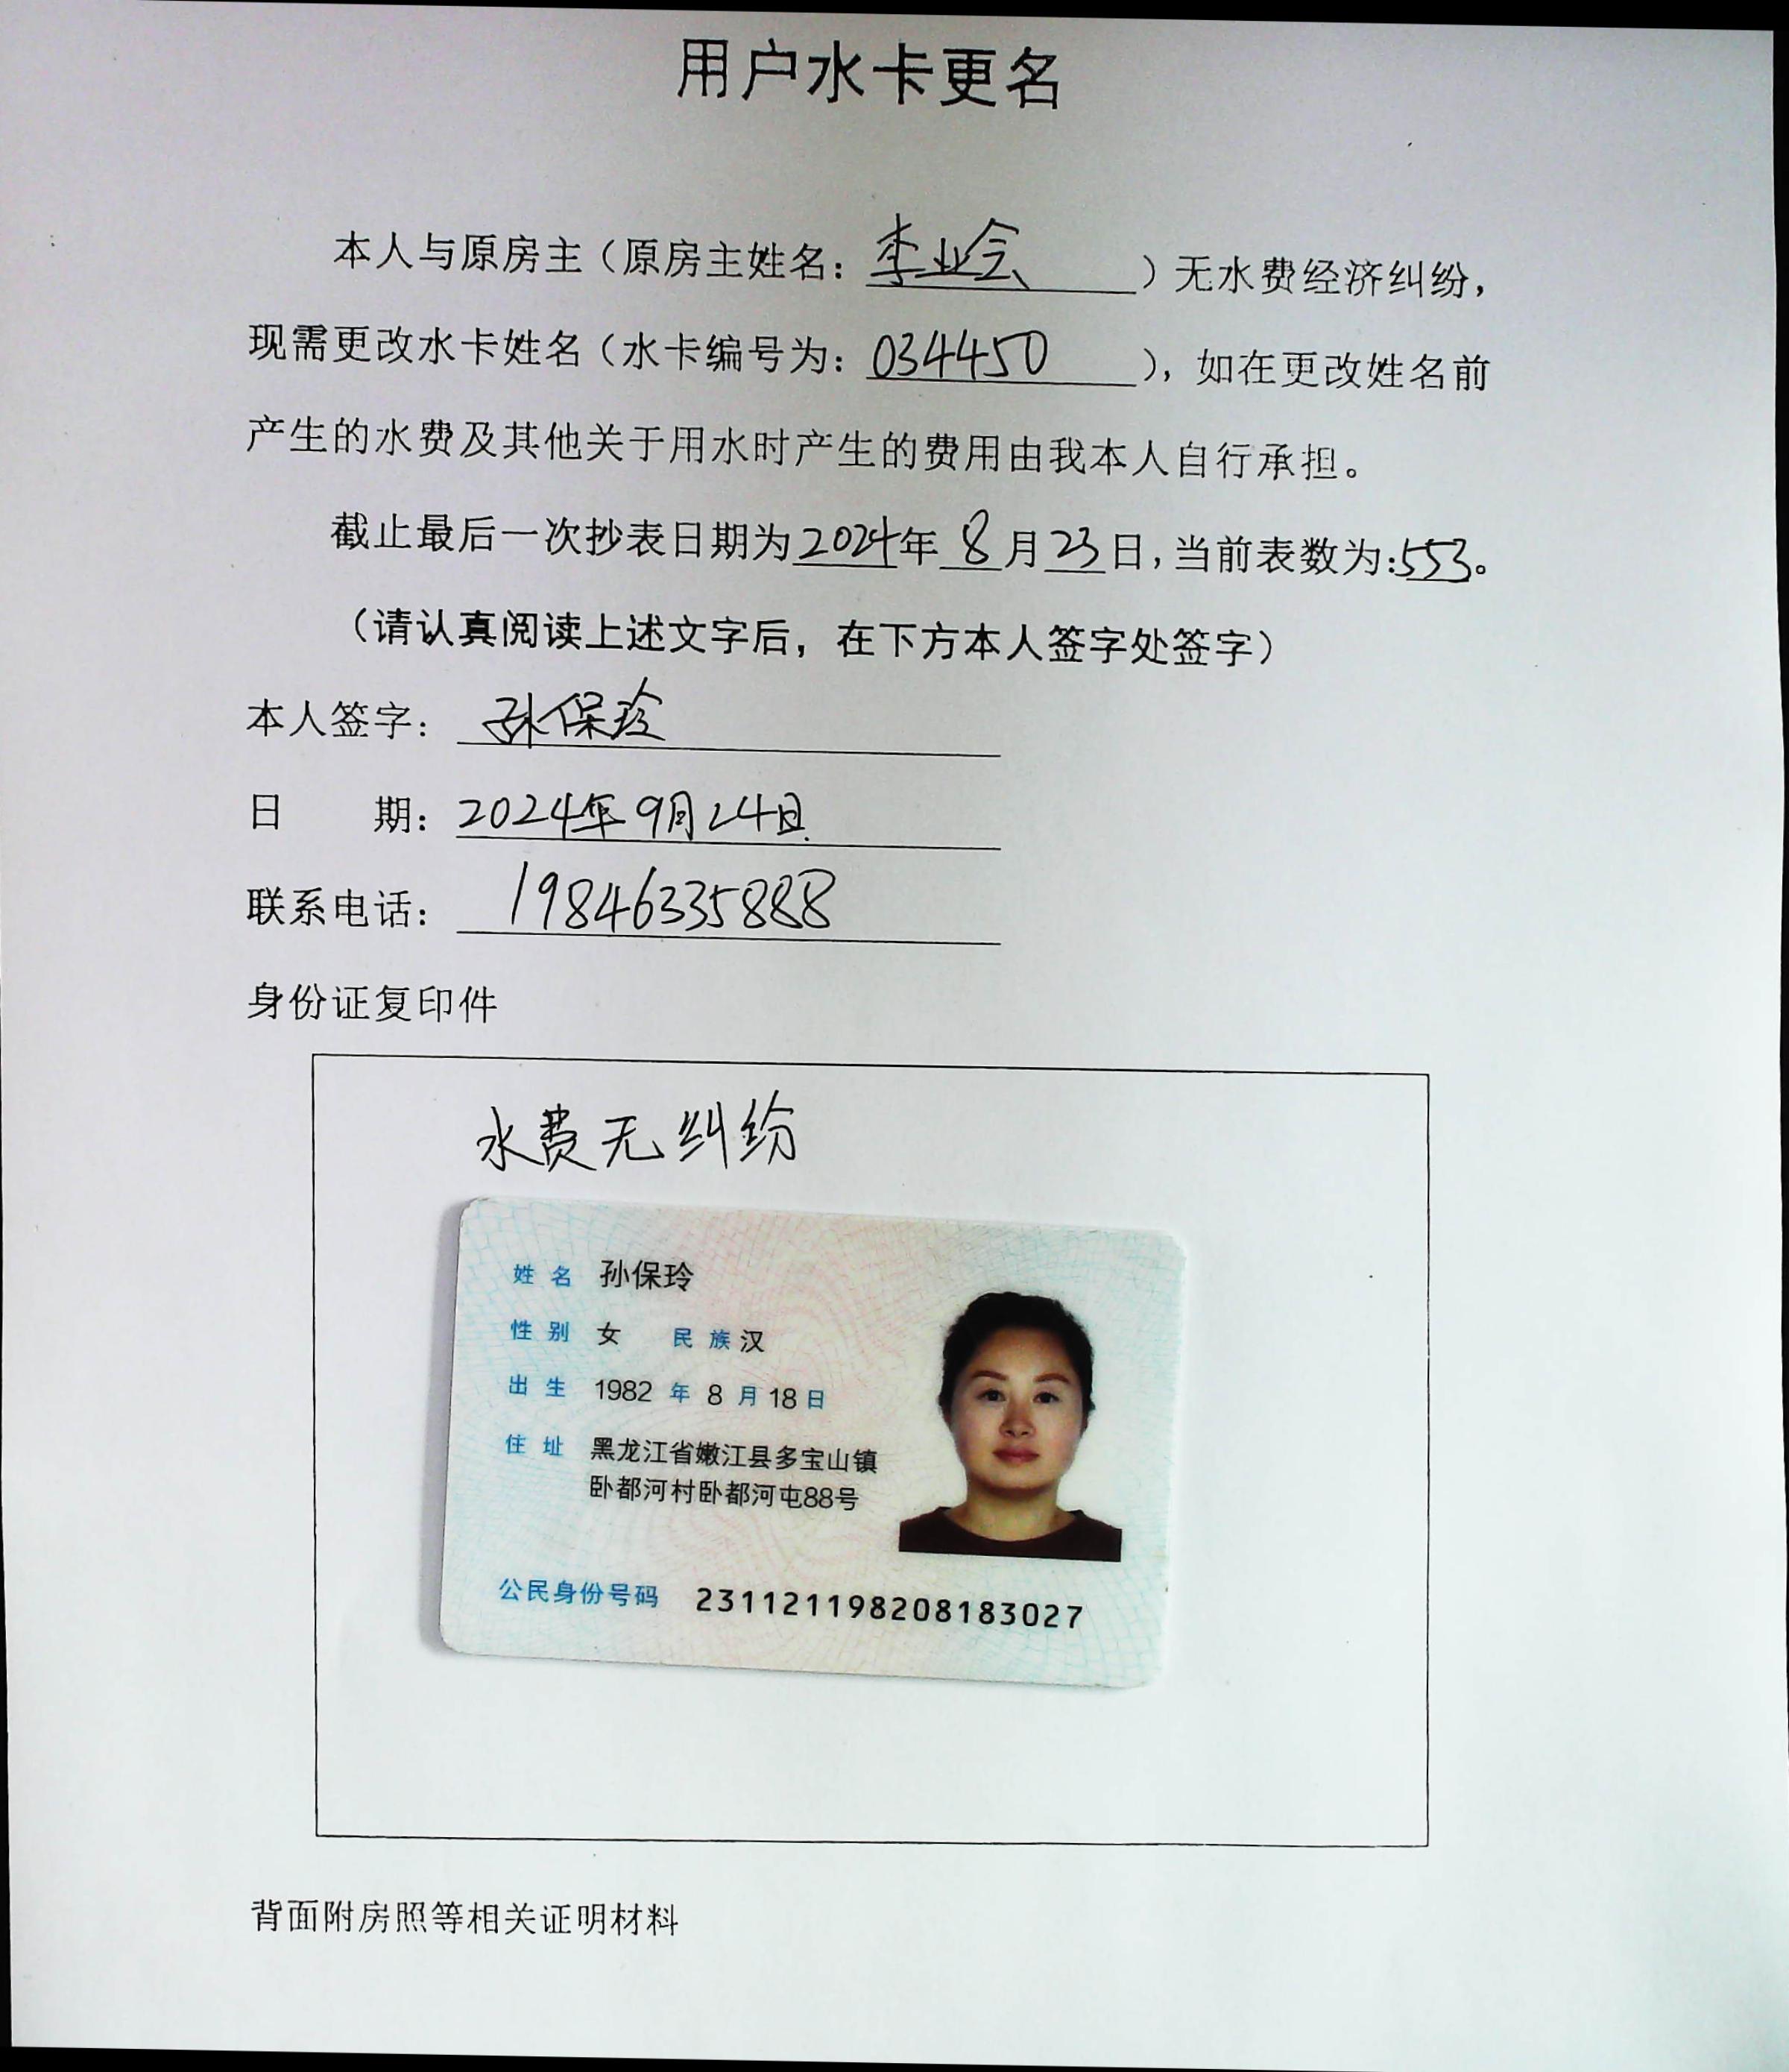 用户水卡更名
本人与原房主（原房主姓名：李业会）无水费经济纠纷，
现需更改水卡姓名（水卡编号为：034450），如在更改姓名前
产生的水费及其他关于用水时产生的费用由我本人自行承担。
截止最后一次抄表日期为2024年8月23日,当前表数为:553。
（请认真阅读上述文字后，在下方本人签字处签字）
本人签字：孙保玲
日　　期：2024年9月24日.
联系电话：19846335888
身份证复印件
水费无纠纷
姓名 孙保玲
性别 女 民族 汉
出生 1982 年 8 月 18 日
住址 黑龙江省嫩江县多宝山镇
卧都河村卧都河屯88号
公民身份号码 231121198208183027
背面附房照等相关证明材料